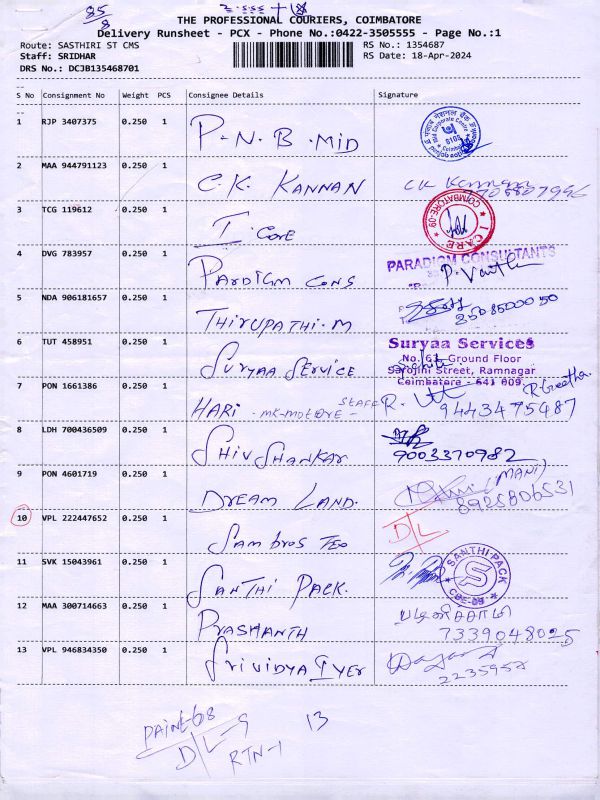 85
8
THE PROFESSIONAL COURIERS, COIMBATORE
Delivery Runsheet - PCX - Phone No.:0422-3505555 - Page No.:1
Route: SASTHIRI ST CMS
RS No.: 1354687
Staff: SRIDHAR
RS Date: 18-Apr-2024
DRS No.: DCJB135468701
S No Consignment No Weight PCS Consignee Details Signature
1 RJP 3407375 0.250 1 P.N.B.MID
2 MAA 944791123 0.250 1 C.K. KANNAN
3 TCG 119612 0.250 1 I CARE
COIMBATORE-09 I CARE
4 DVG 783957 0.250 1 PARDIGM CONS PARADIGM CONSULTANTS
5 NDA 906181657 0.250 1 THIRUPATHI.M
6 TUT 458951 0.250 1 SURYAA SERVICE Suryaa Services
No. 61, Ground Floor
Sarojini Street, Ramnagar
Coimbatore - 641 009
7 PON 1661386 0.250 1 HARI STAFF R. Geetha
9443475987
8 LDH 700436509 0.250 1 SHIV SHANKAR 9003370982
9 PON 4601719 0.250 1 DREAM LAND. (MANI)
8925806531
10 VPL 222447652 0.250 1 SAMBROS TEO D/L
11 SVK 15043961 0.250 1 SANTHI PACK. SANTHI PACK CBE-09 S
12 MAA 300714663 0.250 1 PRASHANTH பழனிச்சாமி
7339048025
13 VPL 946834350 0.250 1 SRIVIDYA IYER
2235952
D/L-9
13
RTN-1